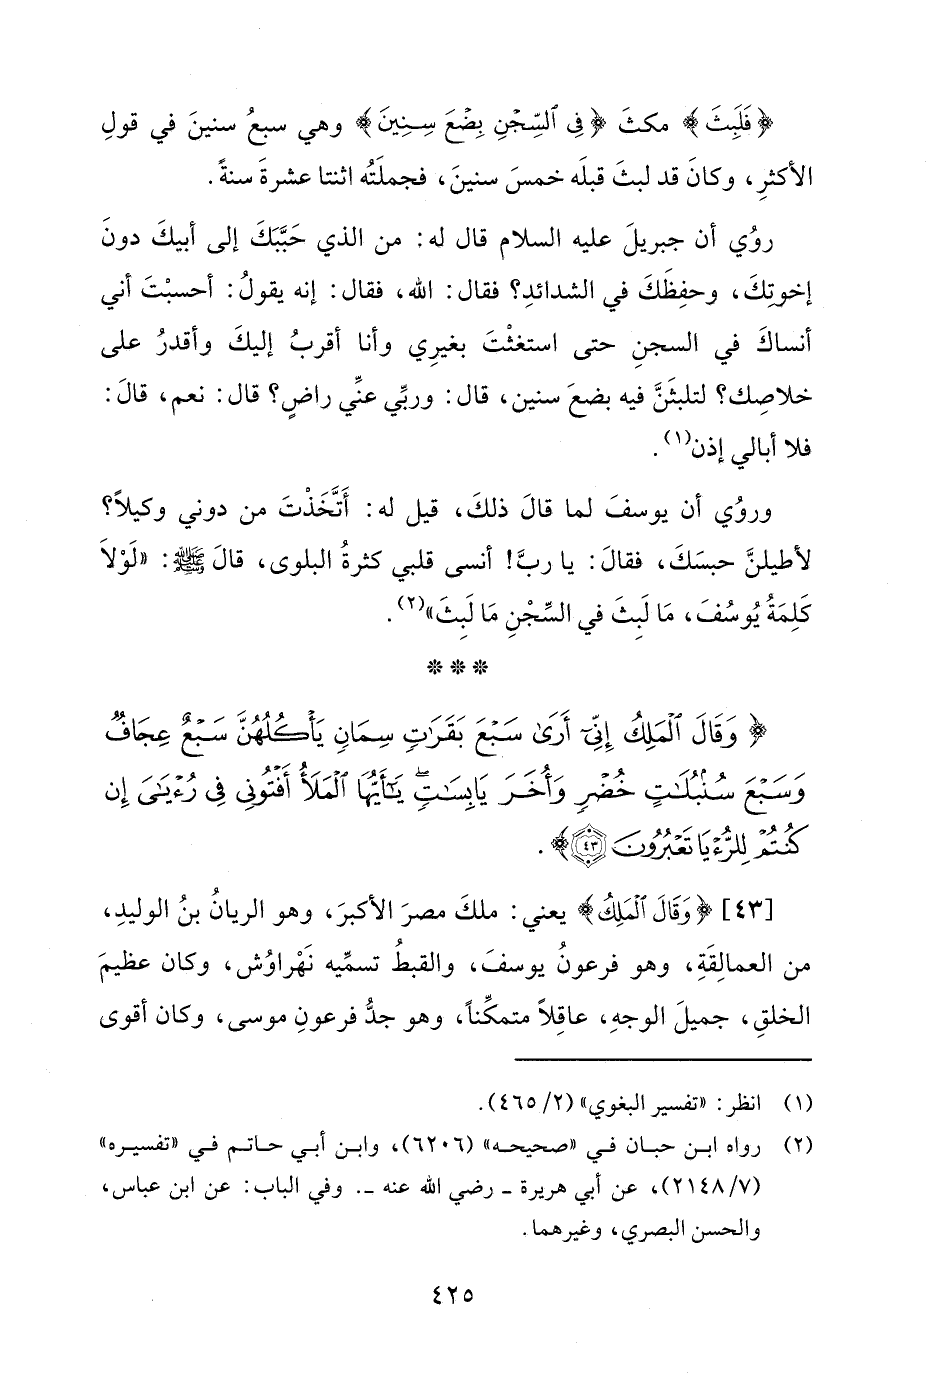 ﴿فَلَبِثَ﴾ مكثَ ﴿فِي ٱلسِّجْنِ بِضْعَ سِنِينَ﴾ وهي سبعُ سنينَ في قولِ
الأكثرِ، وكانَ قد لبثَ قبلَه خمسَ سنينَ، فجملَتُه اثنتا عشرةَ سنةً.
روُي أن جبريلَ عليه السلام قال له: من الذي حَبَّبَكَ إلى أبيكَ دونَ
إخوتِكَ، وحفِظَكَ في الشدائدِ؟ فقال: الله، فقال: إنه يقولُ: أحسبْتَ أني
أنساكَ في السجنِ حتى استغثْتَ بغيرِي وأنا أقربُ إليكَ وأقدرُ على
خلاصِك؟ لتلبثَنَّ فيه بضعَ سنين، قال: وربِّي عنِّي راضٍ؟ قال: نعم، قالَ:
فلا أبالي إذن(١).
وروُي أن يوسفَ لما قالَ ذلكَ، قيل له: أَتَّخَذْتَ من دوني وكيلاً؟
لأطيلنَّ حبسَكَ، فقالَ: يا ربَّ! أنسى قلبي كثرةُ البلوى، قالَ ﷺ: «لَوْلاَ
كَلِمَةُ يُوسُفَ، مَا لَبِثَ في السِّجْنِ مَا لَبِثَ»(٢).
❊ ❊ ❊
﴿وَقَالَ ٱلْمَلِكُ إِنِّيٓ أَرَىٰ سَبْعَ بَقَرَٰتٍ سِمَانٍ يَأْكُلُهُنَّ سَبْعٌ عِجَافٌ
وَسَبْعَ سُنۢبُلَٰتٍ خُضْرٍ وَأُخَرَ يَابِسَٰتٍۖ يَٰٓأَيُّهَا ٱلْمَلَأُ أَفْتُونِي فِي رُءْيَٰىَ إِن
كُنتُمْ لِلرُّءْيَا تَعْبُرُونَ ٤٣﴾.
[٤٣] ﴿وَقَالَ ٱلْمَلِكُ﴾ يعني: ملكَ مصرَ الأكبرَ، وهو الريانُ بنُ الوليدِ،
من العمالِقَةِ، وهو فرعونُ يوسفَ، والقبطُ تسمِّيه نَهْراوُش، وكان عظيمَ
الخلقِ، جميلَ الوجهِ، عاقِلاً متمكِّناً، وهو جدُّ فرعونِ موسى، وكان أقوى
(١) انظر: «تفسير البغوي» (٢/ ٤٦٥).
(٢) رواه ابن حبان في «صحيحه» (٦٢٠٦)، وابن أبي حاتم في «تفسيره»
(٧/ ٢١٤٨)، عن أبي هريرة ـ رضي الله عنه ـ. وفي الباب: عن ابن عباس،
والحسن البصري، وغيرهما.
٤٢٥